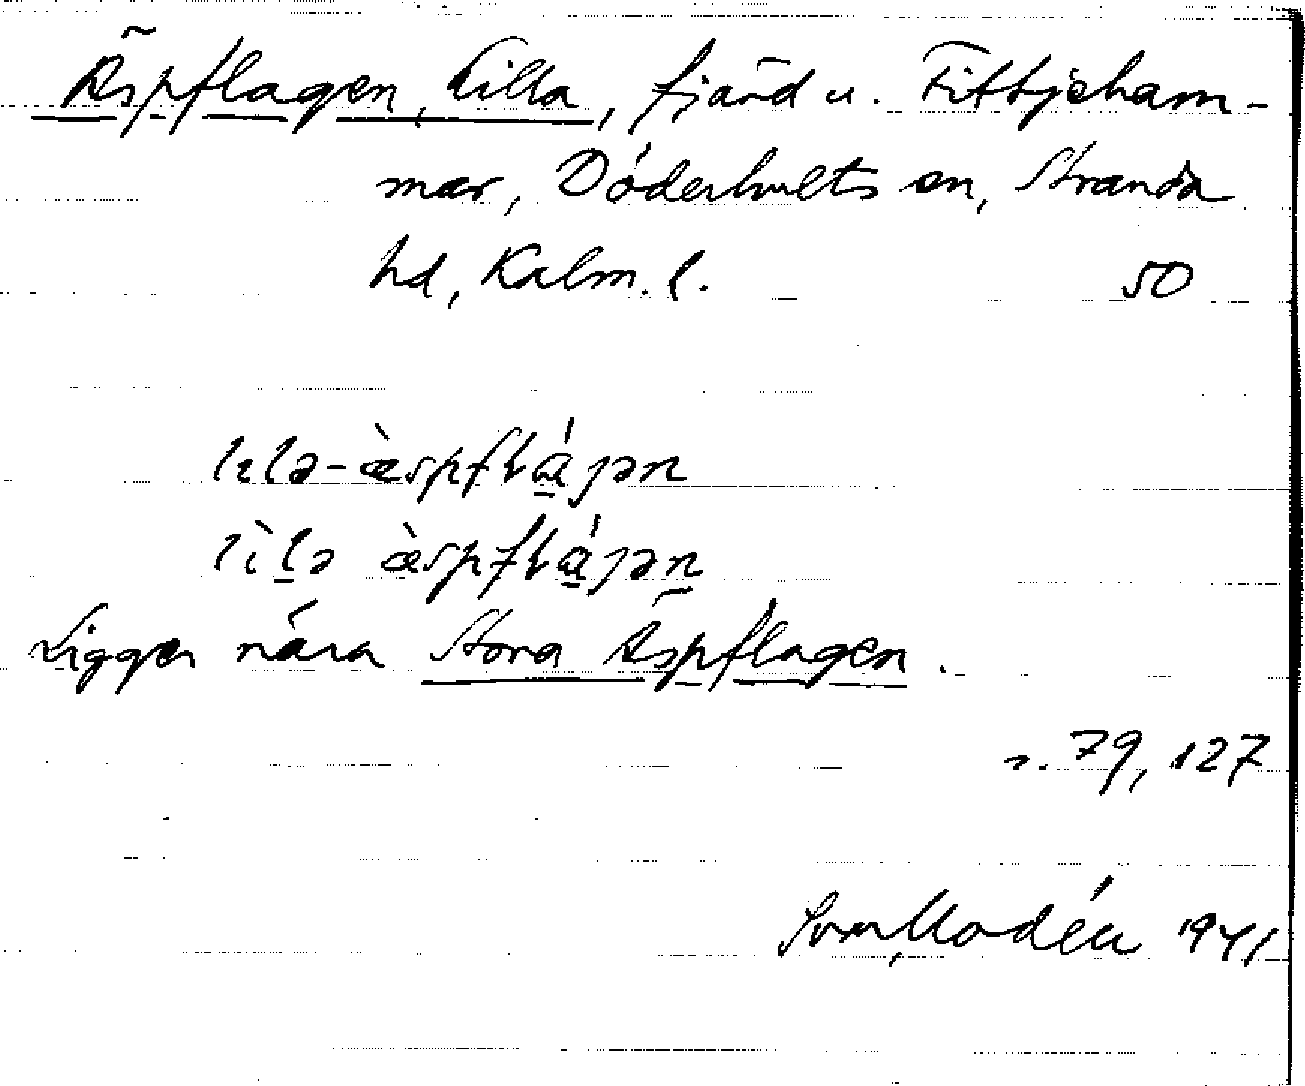 Äspflagen, Lilla, fjärd u. Fittjeham-
mar, Döderhults sn, Stranda
hd, Kalm. l. 50
lɪlə-æ̀spfɫɑ́jən
lìlə æ̀spfɫɑ́jən
Ligger nära Stora Äspflagen.
s. 79, 127
Modéer 1941